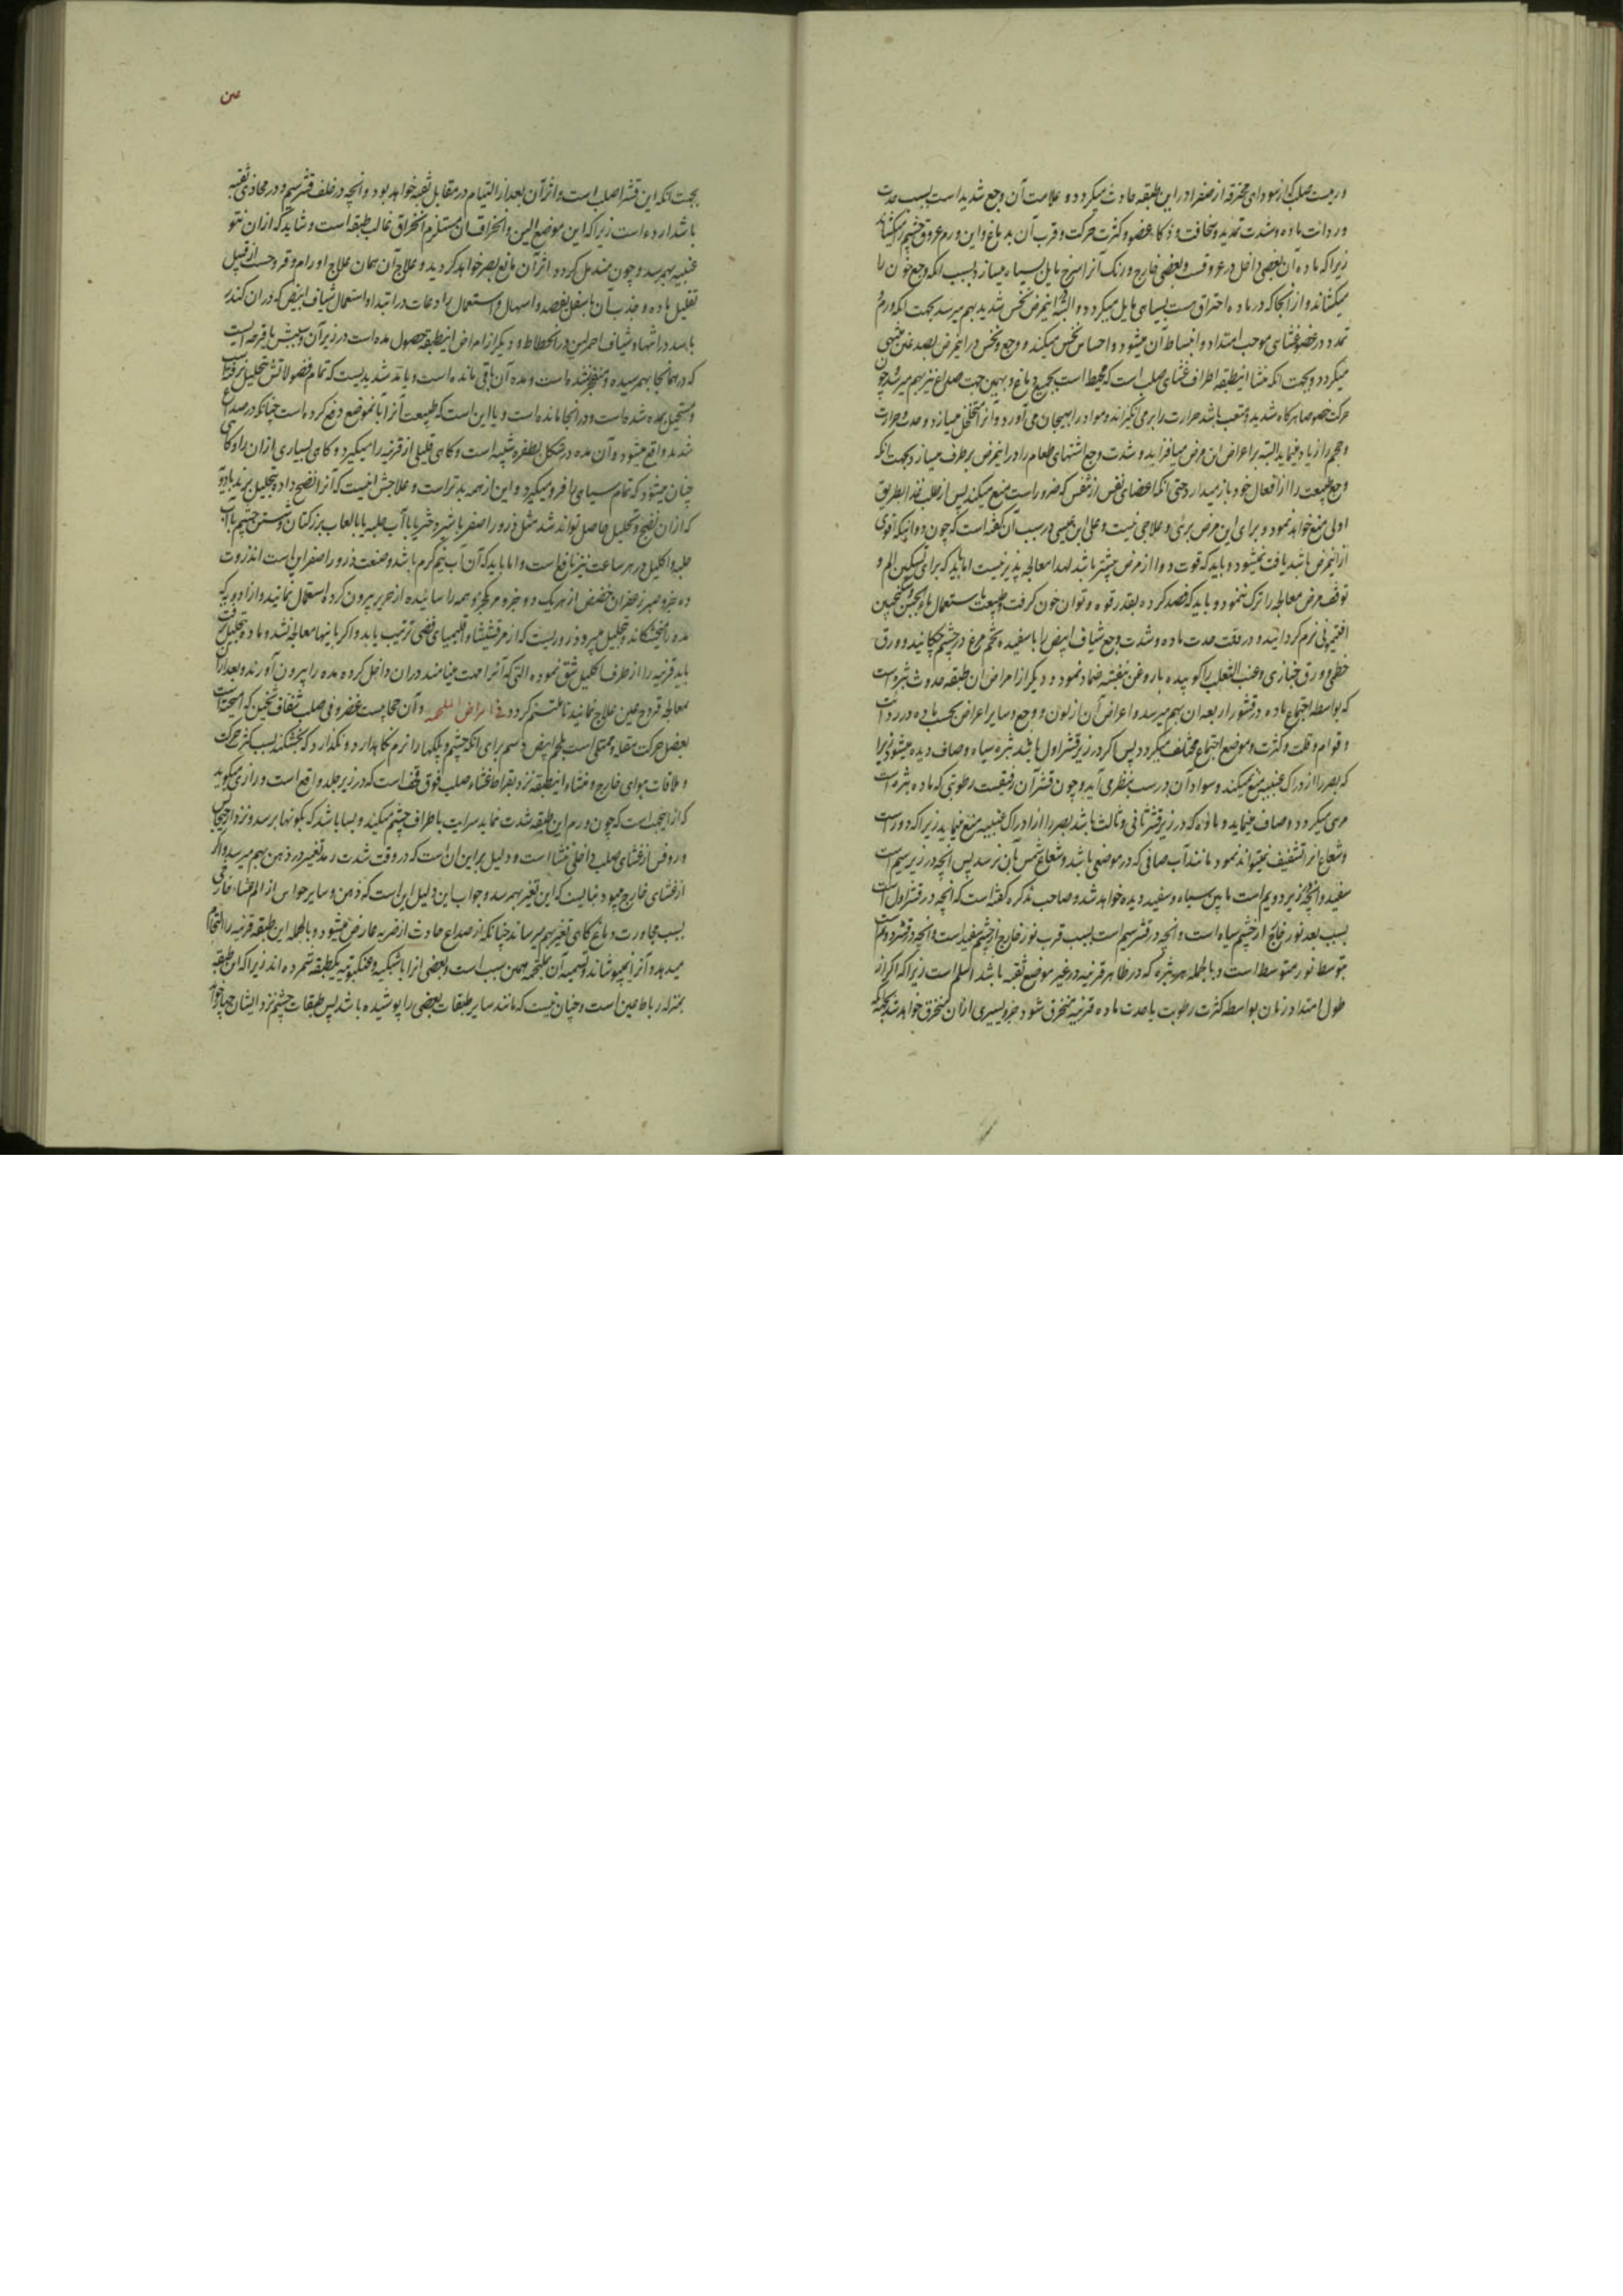 ورمیست صلب که از سودای محترقه از صفرا در این طبقه حادث میگردد و علامت آن وجع شدید است بسبب حدت
و ردائت ماده و شدت تمدید و سخافت و ذکاء عضو و کثرت حرکت و قرب آن بدماغ و این ورم عروق چشم را میکشاند
زیرا که ماده آن بعضی داخل در عروقست و بعضی خارج و رنک آنرا سرخ مایل بسیاه میسازد بسبب انکه وجع خون را
میکشاند و از آنجا که در ماده احتراق هست بسیاهی مایل میکردد و البته اینمرض نخس شدید بهم میرسد بجهت انکه ورم
تمدد در عضو غشای موجب امتداد و انبساط آن میشود و احساس نخس میکند و وجع و نخس در اینمرض بصدغین منتهی
میکردد و بجهت انکه منشا اینطبقه اطراف غشای صلب است که محیط است بجمیع دماغ و بهمین جهت صداع نیز بهم میرسد چون
حرکت خصوصا هرکاه شدید و متعب باشد حرارت را برمی انکیزاند و مواد را بهیجان می آورد و آنرا متخلخل میسازد و حدت و حرارت
و حجم را زیاد مینماید البته بر اعراض این مرض میافزاید و شدت وجع اشتهای طعام را در اینمرض برطرف میسازد بجهت انکه
وجع طبیعت را از افعال خود باز میدارد حتی انکه اعضای نفس از تنفس که ضروراست منع میکند پس از طلب غذا بطریق
اولی منع خواهد نمود و برای این مرض برئی و علاجی نیست و علی ابن عیسی در سبب آن کفته است که چون دوائیکه اقوی
از اینمرض باشد یافت نمیشود و باید که قوت دوا از مرض بیشتر باشد لهذا معالجه پذیر نیست اما باید که برای تسکین الم و
توقف مرض معالجه را ترک ننمود و باید که فصد کرده بقدر قوه و توان خون کرفت و طبیعت باستعمال ماء الجبن و سکنجبین
افتیمونی نرم کردانید و در وقت حدت ماده و شدت وجع شیاف ابیض را با سفیده تخم مرغ در چشم چکانید و ورق
خطمی و ورق خبازی و عنب الثعلب را کوبیده با روغن بنفشه ضماد نمود و دیکر از امراض این طبقه حدوث بثره است
که بواسطه اجتماع ماده در قشور اربعه ان بهم میرسد و اعراض آن از لون و وجع و سایر اعراض بحسب ماده در ردائت
و قوام و قلت و کثرت و موضع اجتماع مختلف میکردد پس اکر در زیر قشر اول باشد بثره سیاه و صاف دیده میشود زیرا
که بصر را از ادراک عنبیه منع نمیکند و سواد آن درست بنظر می آید و چون قشر آن رقیقست رطوبتی که ماده بثره است
مرئی میکردد و صاف مینماید و ماده که در زیر قشر ثانی و ثالث باشد بصر را از ادراک عنبیه منع مینماید زیرا که دور است
و شعاع انرا تشفیف نمیتواند نمود مانند آب صافی که در موضعی باشد و شعاع شمس بان نرسد پس آنچه در زیر سیم است
سفید و انچه در زیر دویم است مابین سیاه و سفید دیده خواهد شد و صاحب تذکره کفته است که انچه در قشر اول است
بسبب بعد نور خارج از چشم سیاه است و انچه در قشر سیم است بسبب قرب نور خارج از چشم سفید است و انچه در قشر دویم است
بتوسط نور متوسط است و بالجمله هر بثره که در ظاهر قرنیه در غیر موضع ثقبه باشد اسلم است زیرا که اکر از
طول امتداد زمان بواسطه کثرت رطوبت یا حدت ماده قرنیه منخرق شود جزو یسیری از ان منخرق خواهد شد
بجهت انکه این قشر اصلب است و اثر آن بعد از التیام در مقابل ثقبه خواهد بود و انچه در خلف قشر سیم و در محاذی ثقبه
باشد ارده است زیرا که این موضع الین و انخراق ان مستلزم انخراق غالب طبقه است و شاید که از ان نتو
عنبیه بهم رسد و چون مندمل کردد اثر آن مانع بصر خواهد کردید و علاج آن همان علاج اورام و قروحست از قبیل
تقلیل ماده و جذب آن باسفل بفصد و اسهال و استعمال رادعات در ابتدا و استعمال شیاف ابیض که در ان کندر
باشد در انتها و شیاف احمر لین در انحطاط و دیکر از امراض اینطبقه حصول مده است در زیر آن و سببش یا قرحه ایست
که در همانجا بهم رسیده و منفجر شده است و مده آن باقی مانده است و یا رمد شدیدیست که تمام فضولاتش تحلیل نرفته
و مستحیل بمده شده است و در انجا مانده است و یا این است که طبیعت آنرا بآنموضع دفع کرده است چنانکه در صداع
شدید واقع میشود و آن مده در شکل بظفره شبیه است و کاهی قلیلی از قرنیه را میکیرد و کاهی بسیاری از ان را و کاهی
چنان میشود که تمام سیاهی را فرو میکیرد و این از همه بدتر است و علاجش اینست که آنرا نضج داده بتحلیل برند بادویه
که از ان نضج و تحلیل حاصل تواند شد مثل ذرور اصفر با شیر دختر یا با آب حلبه یا با لعاب بزرکتان و شستن چشم باب
حلبه و اکلیل در هر ساعت نیز نافع است و اما باید که آن آب نیم کرم باشد و صنعت ذرور اصفر این است انزروت
ده جزو صبر زعفران حضض از هر یک دو جزو مر یکجزو همه را سائیده از حریر بیرون کرده استعمال نمائید و از ادویه که
مده را میخشکاند و تحلیل میبرد ذروریست که از مرقشیشا و اقلیمیای فضی ترتیب یابد و اکر باینها معالجه نشد و ماده بتحلیل نرفت
باید قرنیه را از طرف اکلیل شق نموده التی که آنرا مهت مینامند در ان داخل کرده مده را بیرون آورند و بعد از ان
بمعالجه قروح عین علاج نمائید تا ملتئم کردد فی امراض الملتحمه و آن حجابیست غضروفی صلب شفاف ثخین که آمیخته است
بعضل حرکت مقله و ممتلی است بلحم ابیض دسم برای انکه چشم و پلکها را نرم نکاه دارد و نکذارد که بخشکند بسبب کثرت حرکت
و ملاقات هوای خارج و منشاء اینطبقه نزد بقراط غشاء صلب فوق قحف است که در زیر جلد واقع است و رازی میکوید
که از اینجهت است که چون ورم این طبقه شدت نماید سرایت باطراف چشم میکند و بسا باشد که بکونها برسد و نزد ارجیجانس
و روفس از غشای صلب داخلی منشا است و دلیل بر این ان است که در وقت شدت رمد تغییر در ذهن بهم میرسد و اکر
از غشای خارج میبود نبایست که این تغیر بهم رسد و جواب این دلیل این است که ذهن و سایر حواس از الم غشاء خارجی
بسبب مجاورت دماغ کاهی تغیر بهم میرساند چنانکه از صداع حادث از ضربه عارض میشود و بالجمله این طبقه قرنیه را التحام
میدهد و آنرا میپوشاند و تسمیه آن بملتحمه بهمین سبب است و بعضی انرا با شبکیه و عنکبوتیه یکطبقه شمرده اند زیرا که این طبقه
بمنزله رباط عین است و چنان نیست که مانند سایر طبقات بعضی را پوشیده باشد پس طبقات چشم نزد ایشان چهار خواهد